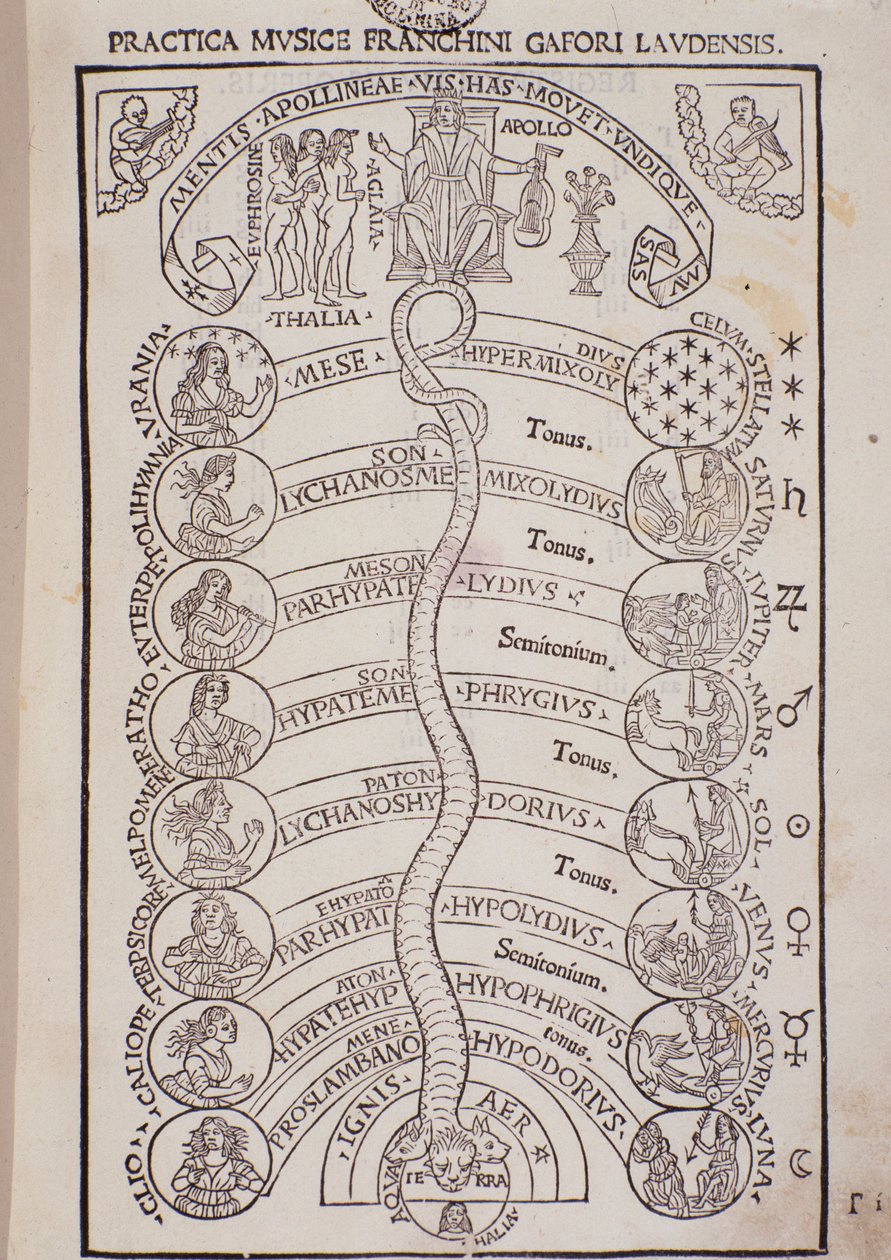 PRACTICA MVSICE FRANCHINI GAFORI LAVDENSIS.
MENTIS · APOLLINEAE · VIS · HAS · MOVET · VNDIQVE · MVSAS
APOLLO
EVPHROSINE
AGLAIA
·THALIA·
VRANIA
MESE
HYPERMIXOLYDIVS
CELVM · STELLATVM
Tonus.
POLIHYMNIA
LYCHANOSMESON
MIXOLYDIVS
SATVRNVS
♄
Tonus.
EVTERPE
PARHYPATE
MESON
LYDIVS
IVPITER
♃
Semitonium.
ERATHO
HYPATEMESON
PHRYGIVS
MARS
♂
Tonus.
MELPOMENE
LYCHANOSHYPATON
DORIVS
SOL
☉
Tonus.
TERPSICORE
PARHYPATEHYPATON
HYPOLYDIVS
VENVS
♀
Semitonium.
CALIOPE
HYPATEHYPATON
HYPOPHRIGIVS
MERCVRIVS
☿
tonus.
CLIO
PROSLAMBANOMENE
HYPODORIVS
LVNA
☾
IGNIS
AER
AQVA
TERRA
THALIA